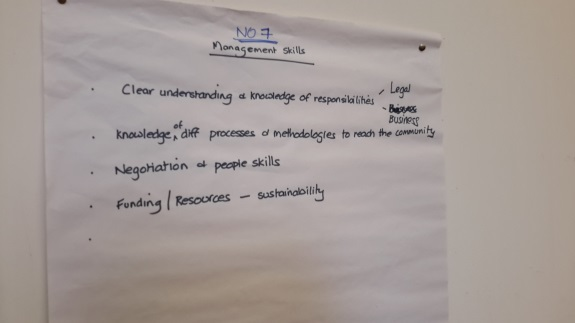 NO 7
Management skills
· Clear understanding & knowledge of responsibilities - Legal
- Business
· Knowledge of diff processes & methodologies to reach the community
· Negotiation & people skills
· Funding / Resources - sustainability
·